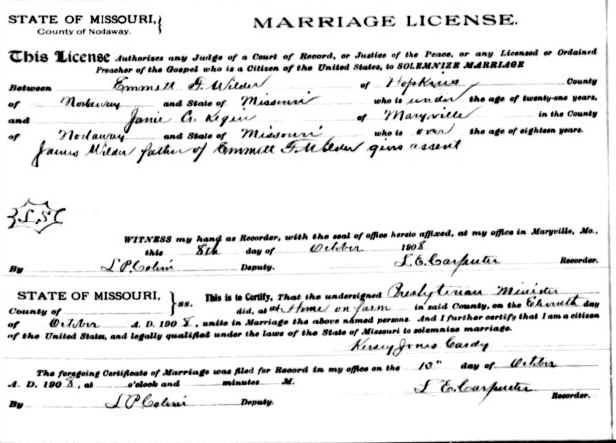 STATE OF MISSOURI,
County of Nodaway.
MARRIAGE LICENSE.
This License Authorizes any Judge of a Court of Record, or Justice of the Peace, or any Licensed or Ordained
Preacher of the Gospel who is a Citizen of the United States, to SOLEMNIZE MARRIAGE
Between Emmett F. Wilder of Hopkins County
of Nodaway and State of Missouri who is under the age of twenty-one years,
and Janie C. of Maryville in the County
of Nodaway and State of Missouri who is over the age of eighteen years.
James Wilder father of Emmett F. Wilder gives assent
L.S.
WITNESS my hand as Recorder, with the seal of office hereto affixed, at my office in Maryville, Mo.,
this 8th day of October 1908
By L P Deputy. L. E. Carpenter Recorder.
STATE OF MISSOURI,
County of
ss.
This is to Certify, That the undersigned Presbyterian Minister
did, at Home on farm in said County, on the Eleventh day
of October A. D. 1908, unite in Marriage the above named persons. And I further certify that I am a citizen
of the United States, and legally qualified under the laws of the State of Missouri to solemnize marriage.
Jones
The foregoing Certificate of Marriage was filed for Record in my office on the day of October
A. D. 1908, at o'clock and minutes M. L. E. Carpenter Recorder.
By L P Deputy.